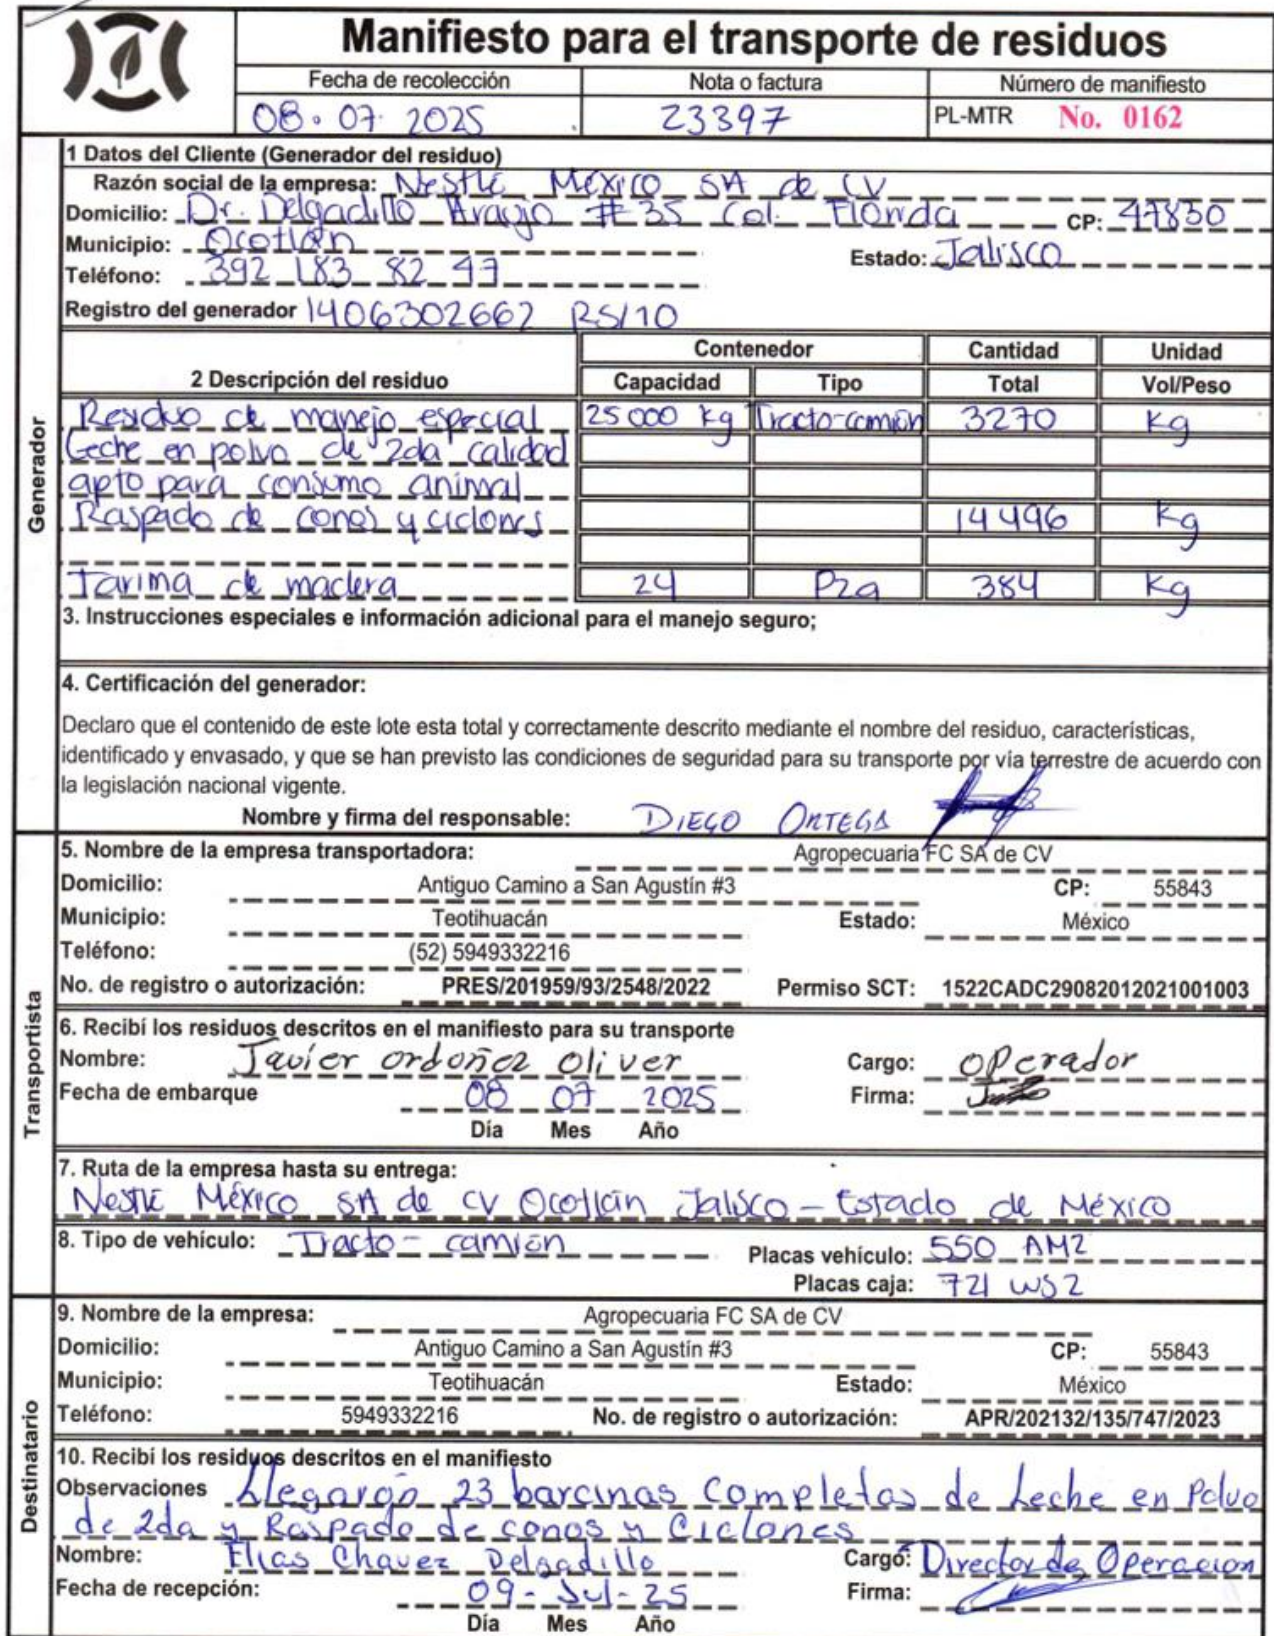 Manifiesto para el transporte de residuos
Fecha de recolección Nota o factura Número de manifiesto
08. 07. 2025 23397 PL-MTR No. 0162
1 Datos del Cliente (Generador del residuo)
Razón social de la empresa: Nestlé México SA de CV
Domicilio: Dr. Delgadillo Araujo #35 Col. Florida CP: 47830
Municipio: Ocotlán
Estado: Jalisco
Teléfono: 392 183 82 47
Registro del generador 1406302662 RS/10
Contenedor Cantidad Unidad
2 Descripción del residuo Capacidad Tipo Total Vol/Peso
Residuo de manejo especial 25000 kg Tracto-camión 3270 Kg
Leche en polvo de 2da calidad
apto para consumo animal
Raspado de conos y ciclones 14496 Kg
Tarima de madera 24 Pza 384 Kg
Generador
3. Instrucciones especiales e información adicional para el manejo seguro;
4. Certificación del generador:
Declaro que el contenido de este lote esta total y correctamente descrito mediante el nombre del residuo, características,
identificado y envasado, y que se han previsto las condiciones de seguridad para su transporte por vía terrestre de acuerdo con
la legislación nacional vigente.
Nombre y firma del responsable: DIEGO ORTEGA
5. Nombre de la empresa transportadora: Agropecuaria FC SA de CV
Domicilio: Antiguo Camino a San Agustín #3 CP: 55843
Municipio: Teotihuacán Estado: México
Teléfono: (52) 5949332216
No. de registro o autorización: PRES/201959/93/2548/2022 Permiso SCT: 1522CADC29082012021001003
Transportista
6. Recibí los residuos descritos en el manifiesto para su transporte
Nombre: Javier ordoñez oliver Cargo: operador
Fecha de embarque 08 07 2025 Firma:
Día Mes Año
7. Ruta de la empresa hasta su entrega:
Nestlé México SA de CV Ocotlán Jalisco - Estado de México
8. Tipo de vehículo: Tracto-camión Placas vehículo: 550 AM2
Placas caja: 721 WS2
9. Nombre de la empresa: Agropecuaria FC SA de CV
Domicilio: Antiguo Camino a San Agustín #3 CP: 55843
Municipio: Teotihuacán Estado: México
Teléfono: 5949332216 No. de registro o autorización: APR/202132/135/747/2023
Destinatario
10. Recibí los residuos descritos en el manifiesto
Observaciones Llegarón 23 barcinas Completas de Leche en Polvo
de 2da y Raspado de conos y Ciclones
Nombre: Elias Chavez Delgadillo Cargo: Director de Operacion
Fecha de recepción: 09-Jul-25 Firma:
Día Mes Año